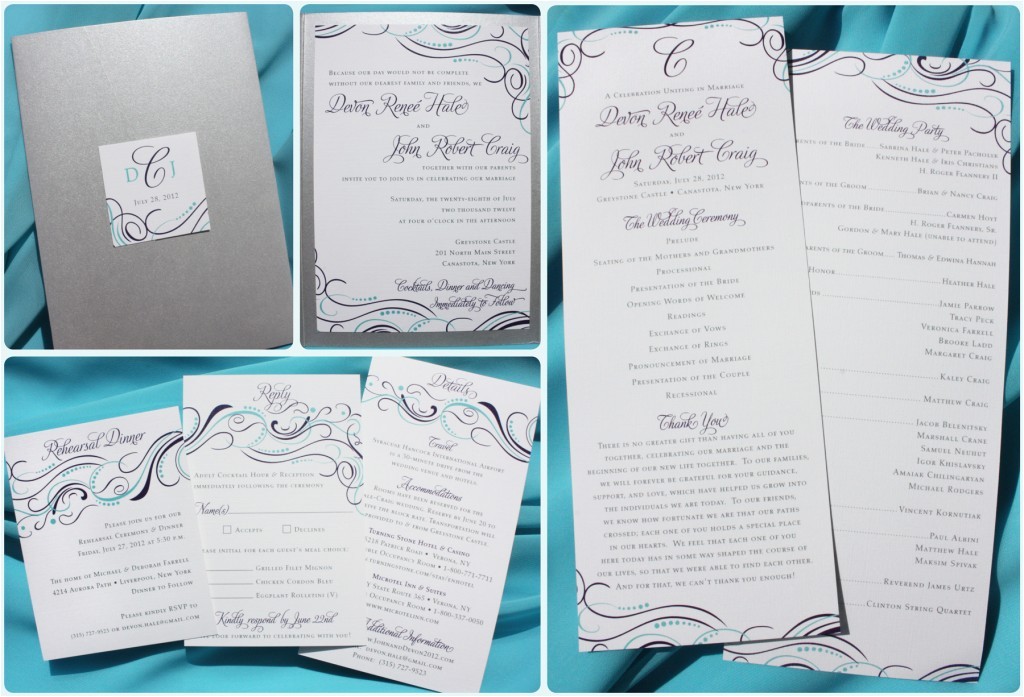 C
D J
July 28, 2012
Because our day would not be complete
without our dearest family and friends, we
Devon Reneé Hale
and
John Robert Craig
together with our parents
invite you to join us in celebrating our marriage
Saturday, the twenty-eighth of July
two thousand twelve
at four o'clock in the afternoon
Greystone Castle
201 North Main Street
Canastota, New York
Cocktails, Dinner and Dancing
Immediately to Follow
Rehearsal Dinner
Please join us for our
Rehearsal Ceremony & Dinner
Friday, July 27, 2012 at 5:30 p.m.
The home of Michael & Deborah Farrell
4214 Aurora Path • Liverpool, New York
Dinner to Follow
Please kindly RSVP to
(315) 727-9523 or devon.hale@gmail.com
Reply
Adult Cocktail Hour & Reception
immediately following the ceremony
Name(s)
Accepts Declines
Please initial for each guest's meal choice.
Grilled Filet Mignon
Chicken Cordon Bleu
Eggplant Rolletini (V)
Kindly respond by June 22nd
look forward to celebrating with you!
Details
Travel
Syracuse Hancock International Airport
is a 30-minute drive from the
wedding venue and hotels.
Accommodations
Rooms have been reserved for the
Hale-Craig wedding. Reserve by June 20 to
the block rate. Transportation will
provided to & from Greystone Castle
Turning Stone Hotel & Casino
5218 Patrick Road • Verona, NY
Occupancy Room • 1-800-771-7711
Microtel Inn & Suites
Street • Verona, NY
Occupancy Room • 1-800-337-0050
www.microtelinn.com
Additional Information
www.johnanddevon2012.com
devon.hale@gmail.com
Phone: (315) 727-9523
C
A Celebration Uniting in Marriage
Devon Reneé Hale
and
John Robert Craig
Saturday, July 28, 2012
Greystone Castle • Canastota, New York
The Wedding Ceremony
Prelude
Seating of the Mothers and Grandmothers
Processional
Presentation of the Bride
Opening Words of Welcome
Readings
Exchange of Vows
Exchange of Rings
Pronouncement of Marriage
Presentation of the Couple
Recessional
Thank You
There is no greater gift than having all of you
together, celebrating our marriage and the
beginning of our new life together. To our families,
we will forever be grateful for your guidance,
support, and love, which have helped us grow into
the individuals we are today. To our friends,
we know how fortunate we are that our paths
crossed; each one of you holds a special place
in our hearts. We feel that each one of you
here today has in some way shaped the course of
our lives, so that we were able to find each other.
And for that, we can't thank you enough!
The Wedding Party
Parents of the Bride Sabrina Hale & Peter Pacholer
Kenneth Hale & Iris Christiani
H. Roger Flannery II
Parents of the Groom Brian & Nancy Craig
Grandparents of the Bride Carmen Hoyt
H. Roger Flannery, Sr.
Gordon & Mary Hale (unable to attend)
Grandparents of the Groom Thomas & Edwina Hannah
Honor Heather Hale
Jamie Parrow
Tracy Puck
Veronica Farrell
Brooke Ladd
Margaret Craig
Kaley Craig
Matthew Craig
Jacob Belenitsky
Marshall Crane
Samuel Neuhut
Igor Khislavsky
Amaiak Chilingarian
Michael Rodgers
Vincent Kornutiak
Paul Albini
Matthew Hale
Maksim Spivak
Reverend James Urtz
Clinton String Quartet